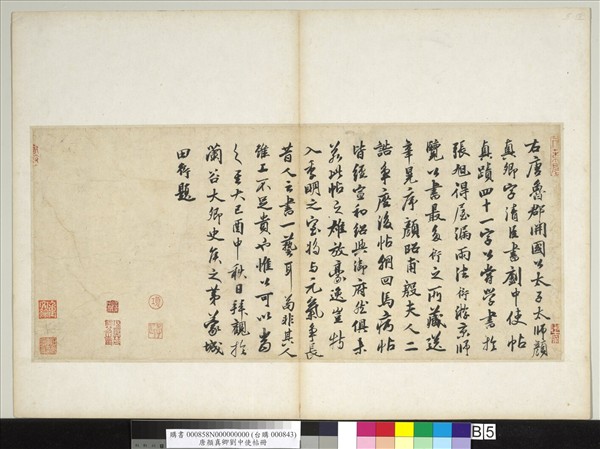 右唐魯郡開國公太子太師顏
真卿字清臣書劉中使帖
真蹟四十一字公嘗學書於
張旭得屋漏雨法衍游京師
覽公書最多衍之所藏送
辛晃序顏昭甫殷夫人二
誥爭座後帖綱回馬病帖
皆經宣和紹興御府然俱未
若此帖之雄放豪逸豈特
入季明之室將与元氣爭長
昔人云書一藝耳苟非其人
雖工不足貴也惟公可以當
之至大己酉中秋日拜觀於
蘭谷大卿史侯之第蒙城
田衍題
購書 000858N000000000 (台購 000843)
唐顏真卿劉中使帖冊
B 5